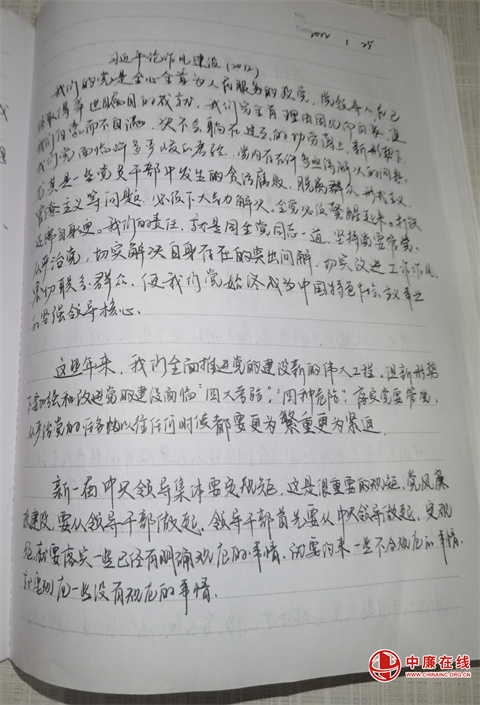 2022 1 25
习近平论作风建设(2012)
我们的党是全心全意为人民服务的政党,党领导人民已
经取得举世瞩目的成就,我们完全有理由因此而自豪,但
我们自豪而不自满,决不会躺在过去的功劳簿上,新形势下,
我们党面临许多严峻的考验,党内存在许多亟待解决的问题,
尤其是一些党员干部中发生的贪污腐败,脱离群众,形式主义,
官僚主义等问题,必须下大气力解决。全党必须警醒起来。打铁
还需自身硬。我们的责任,就是同全党同志一道,坚持党要管党,
从严治党,切实解决自身存在的突出问题,切实改进工作作风,
密切联系群众,使我们党始终成为中国特色社会主义事业
的坚强领导核心。
这些年来,我们全面推进党的建设新的伟大工程。但新形势
下加强和改进党的建设面临“四大考验”、“四种危险”,落实党要管党,
从严治党的任务比以往任何时候都要更为繁重更为紧迫。
新一届中央领导集体要定规矩,这是很重要的规矩,党风廉
政建设,要从领导干部做起,领导干部首先要从中央领导做起,定规
矩,就要落实一些已经有明确规定的事情,约束一些不合规定的事情,
规范一些没有规定的事情.
中廉在线
WWW.CHINAINC.ORG.CN